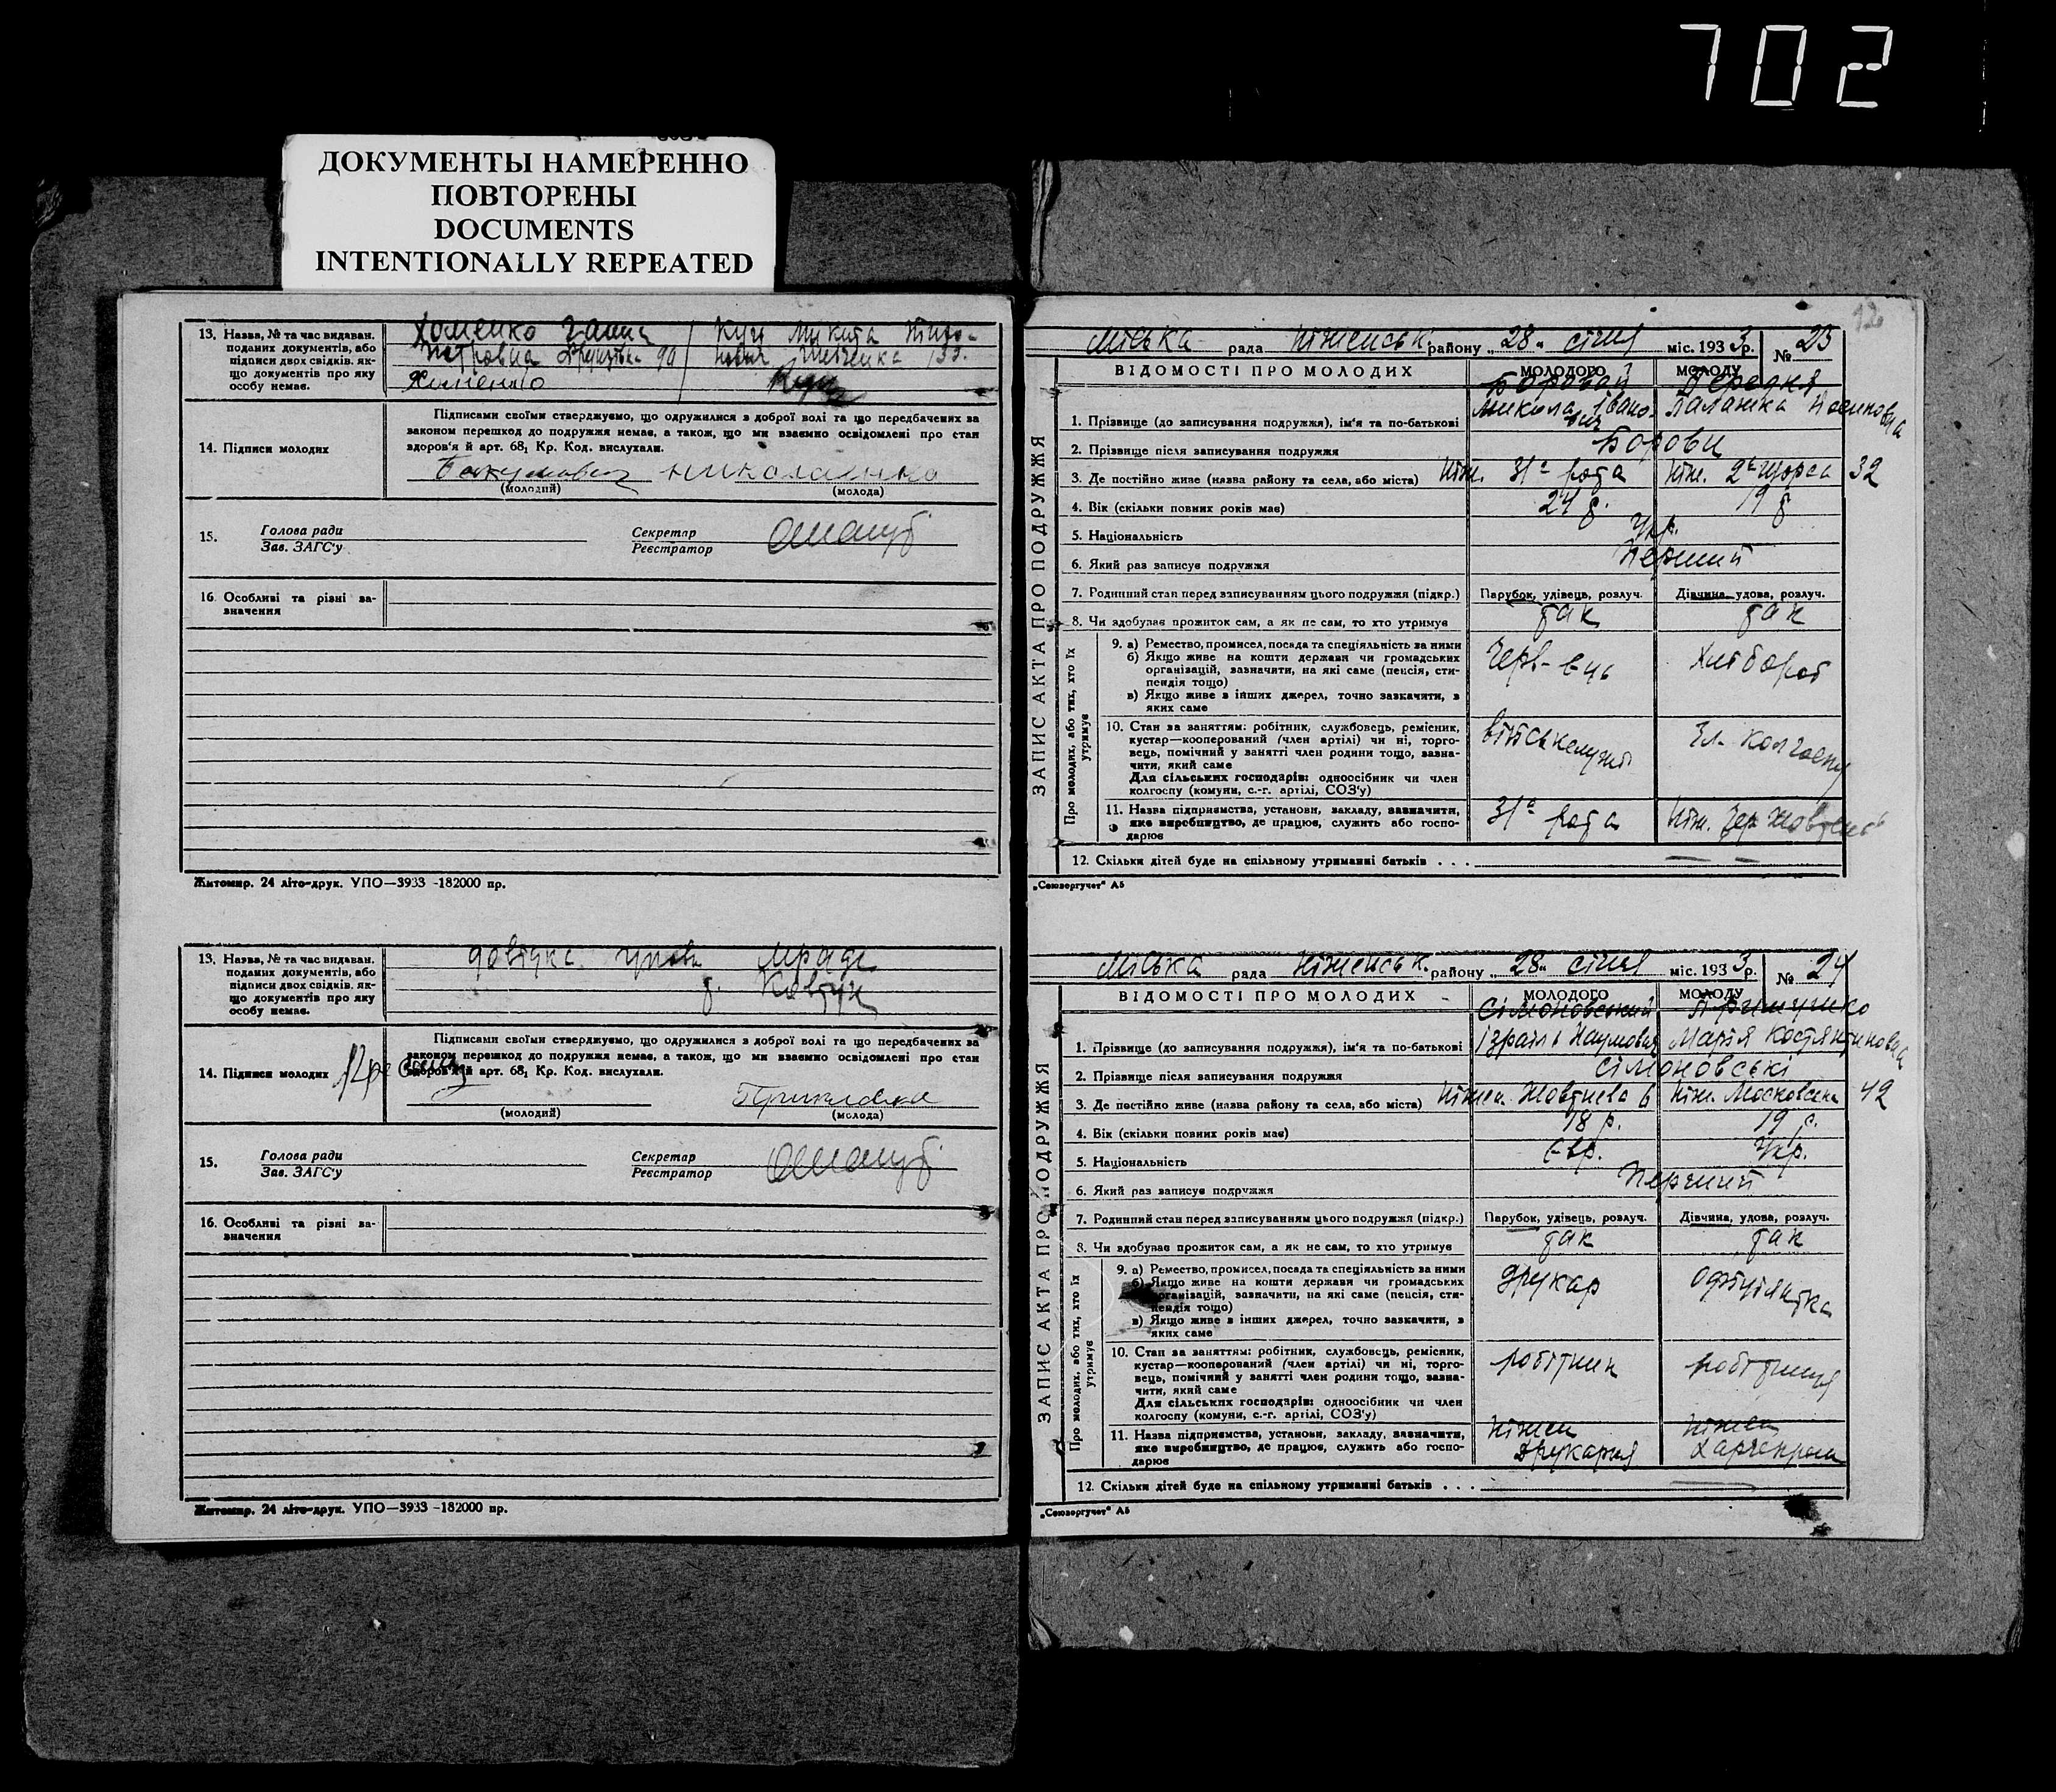 702
ДОКУМЕНТЫ НАМЕРЕННО
ПОВТОРЕНЫ
DOCUMENTS
INTENTIONALLY REPEATED
13. Назва, № та час видаван. поданих документів, або підписи двох свідків, якщо документів про яку особу немає.
Хоменко Ганна
Петровна 90
Хоменко
Куць Микита
Шевченка 133.
14. Підписи молодих
Підписами своїми стверджуємо, що одружилися з доброї волі та що передбачених за
законом перешкод до подружжя немає, а також, що ми взаємно освідомлені про стан
здоров'я й арт. 68, Кр. Код. вислухали.
(молодий) (молода)
15. Голова ради
Зав. ЗАГС'у
Секретар
Реєстратор
16. Особливі та різні зазначення
Житомир. 24 літо-друк. УПО—3933 -182000 пр.
13. Назва, № та час видаван. поданих документів, або підписи двох свідків, якщо документів про яку особу немає.
довідка
Ковтун
14. Підписи молодих
Підписами своїми стверджуємо, що одружилися з доброї волі та що передбачених за
законом перешкод до подружжя немає, а також, що ми взаємно освідомлені про стан
здоров'я й арт. 68, Кр. Код. вислухали.
(молодий) (молода)
15. Голова ради
Зав. ЗАГС'у
Секретар
Реєстратор
16. Особливі та різні зазначення
Житомир. 24 літо-друк. УПО—3933 -182000 пр.
12
Міська рада Ніженськ. району „28„ січня міс. 1933 р. № 23
ЗАПИС АКТА ПРО ПОДРУЖЖЯ
ВІДОМОСТІ ПРО МОЛОДИХ МОЛОДОГО МОЛОДУ
Боровий Середня
1. Прізвище (до записування подружжя), ім'я та по-батькові Микола Іванович Палажка
2. Прізвище після записування подружжя Борови
3. Де постійно живе (назва району та села, або міста) Ніж. 31а рота Ніж. 2а Щорса 32
4. Вік (скільки повних років має) 24 р. 19 р
5. Національність Укр.
6. Який раз записує подружжя Перший
7. Родинний стан перед записуванням цього подружжя (підкр.) Парубок, удівець, розлуч. Дівчина, удова, розлуч.
8. Чи здобуває прожиток сам, а як не сам, то хто утримує так так
Про молодих, або тих, хто їх утримує
9. а) Ремество, промисел, посада та спеціяльність за ними
б) Якщо живе на кошти держави чи громадських
організацій, зазначити, на які саме (пенсія, сти-
пендія тощо)
в) Якщо живе з інших джерел, точно зазначити, з
яких саме
Черв-ець Хлібороб
10. Стан за заняттям: робітник, службовець, ремісник,
кустар—кооперований (член артілі) чи ні, торго-
вець, помічний у занятті член родини тощо, зазна-
чити, який саме
Для сільських господарів: одноосібник чи член
колгоспу (комуни, с.-г. артілі, СОЗ'у)
військслужб Чл. колгоспу
11. Назва підприємства, установи, закладу, зазначити,
яке виробництво, де працює, служить або госпо-
дарює
31а рота Ніж.
12. Скільки дітей буде на спільному утриманні батьків . . . — —
„Союзоргучет“ А5
Міська рада Ніженськ. району „28„ січня міс. 1933 р. № 24
ЗАПИС АКТА ПРО ПОДРУЖЖЯ
ВІДОМОСТІ ПРО МОЛОДИХ МОЛОДОГО МОЛОДУ
Сімоновський
1. Прізвище (до записування подружжя), ім'я та по-батькові Ізраїль Наумович Марія Костянтиновна
2. Прізвище після записування подружжя Сімоновські
3. Де постійно живе (назва району та села, або міста) Ніжен. Жовтнева 6 Ніж. Московська 42
4. Вік (скільки повних років має) 18 р. 19 р.
5. Національність Євр. Укр.
6. Який раз записує подружжя Перший
7. Родинний стан перед записуванням цього подружжя (підкр.) Парубок, удівець, розлуч. Дівчина, удова, розлуч.
8. Чи здобуває прожиток сам, а як не сам, то хто утримує так так
Про молодих, або тих, хто їх утримує
9. а) Ремество, промисел, посада та спеціяльність за ними
б) Якщо живе на кошти держави чи громадських
організацій, зазначити, на які саме (пенсія, сти-
пендія тощо)
в) Якщо живе з інших джерел, точно зазначити, з
яких саме
друкар офіціянтка
10. Стан за заняттям: робітник, службовець, ремісник,
кустар—кооперований (член артілі) чи ні, торго-
вець, помічний у занятті член родини тощо, зазна-
чити, який саме
Для сільських господарів: одноосібник чи член
колгоспу (комуни, с.-г. артілі, СОЗ'у)
робітник робітниця
11. Назва підприємства, установи, закладу, зазначити,
яке виробництво, де працює, служить або госпо-
дарює
Ніжен Друкарня Ніжен
12. Скільки дітей буде на спільному утриманні батьків . . . —
„Союзоргучет“ А5